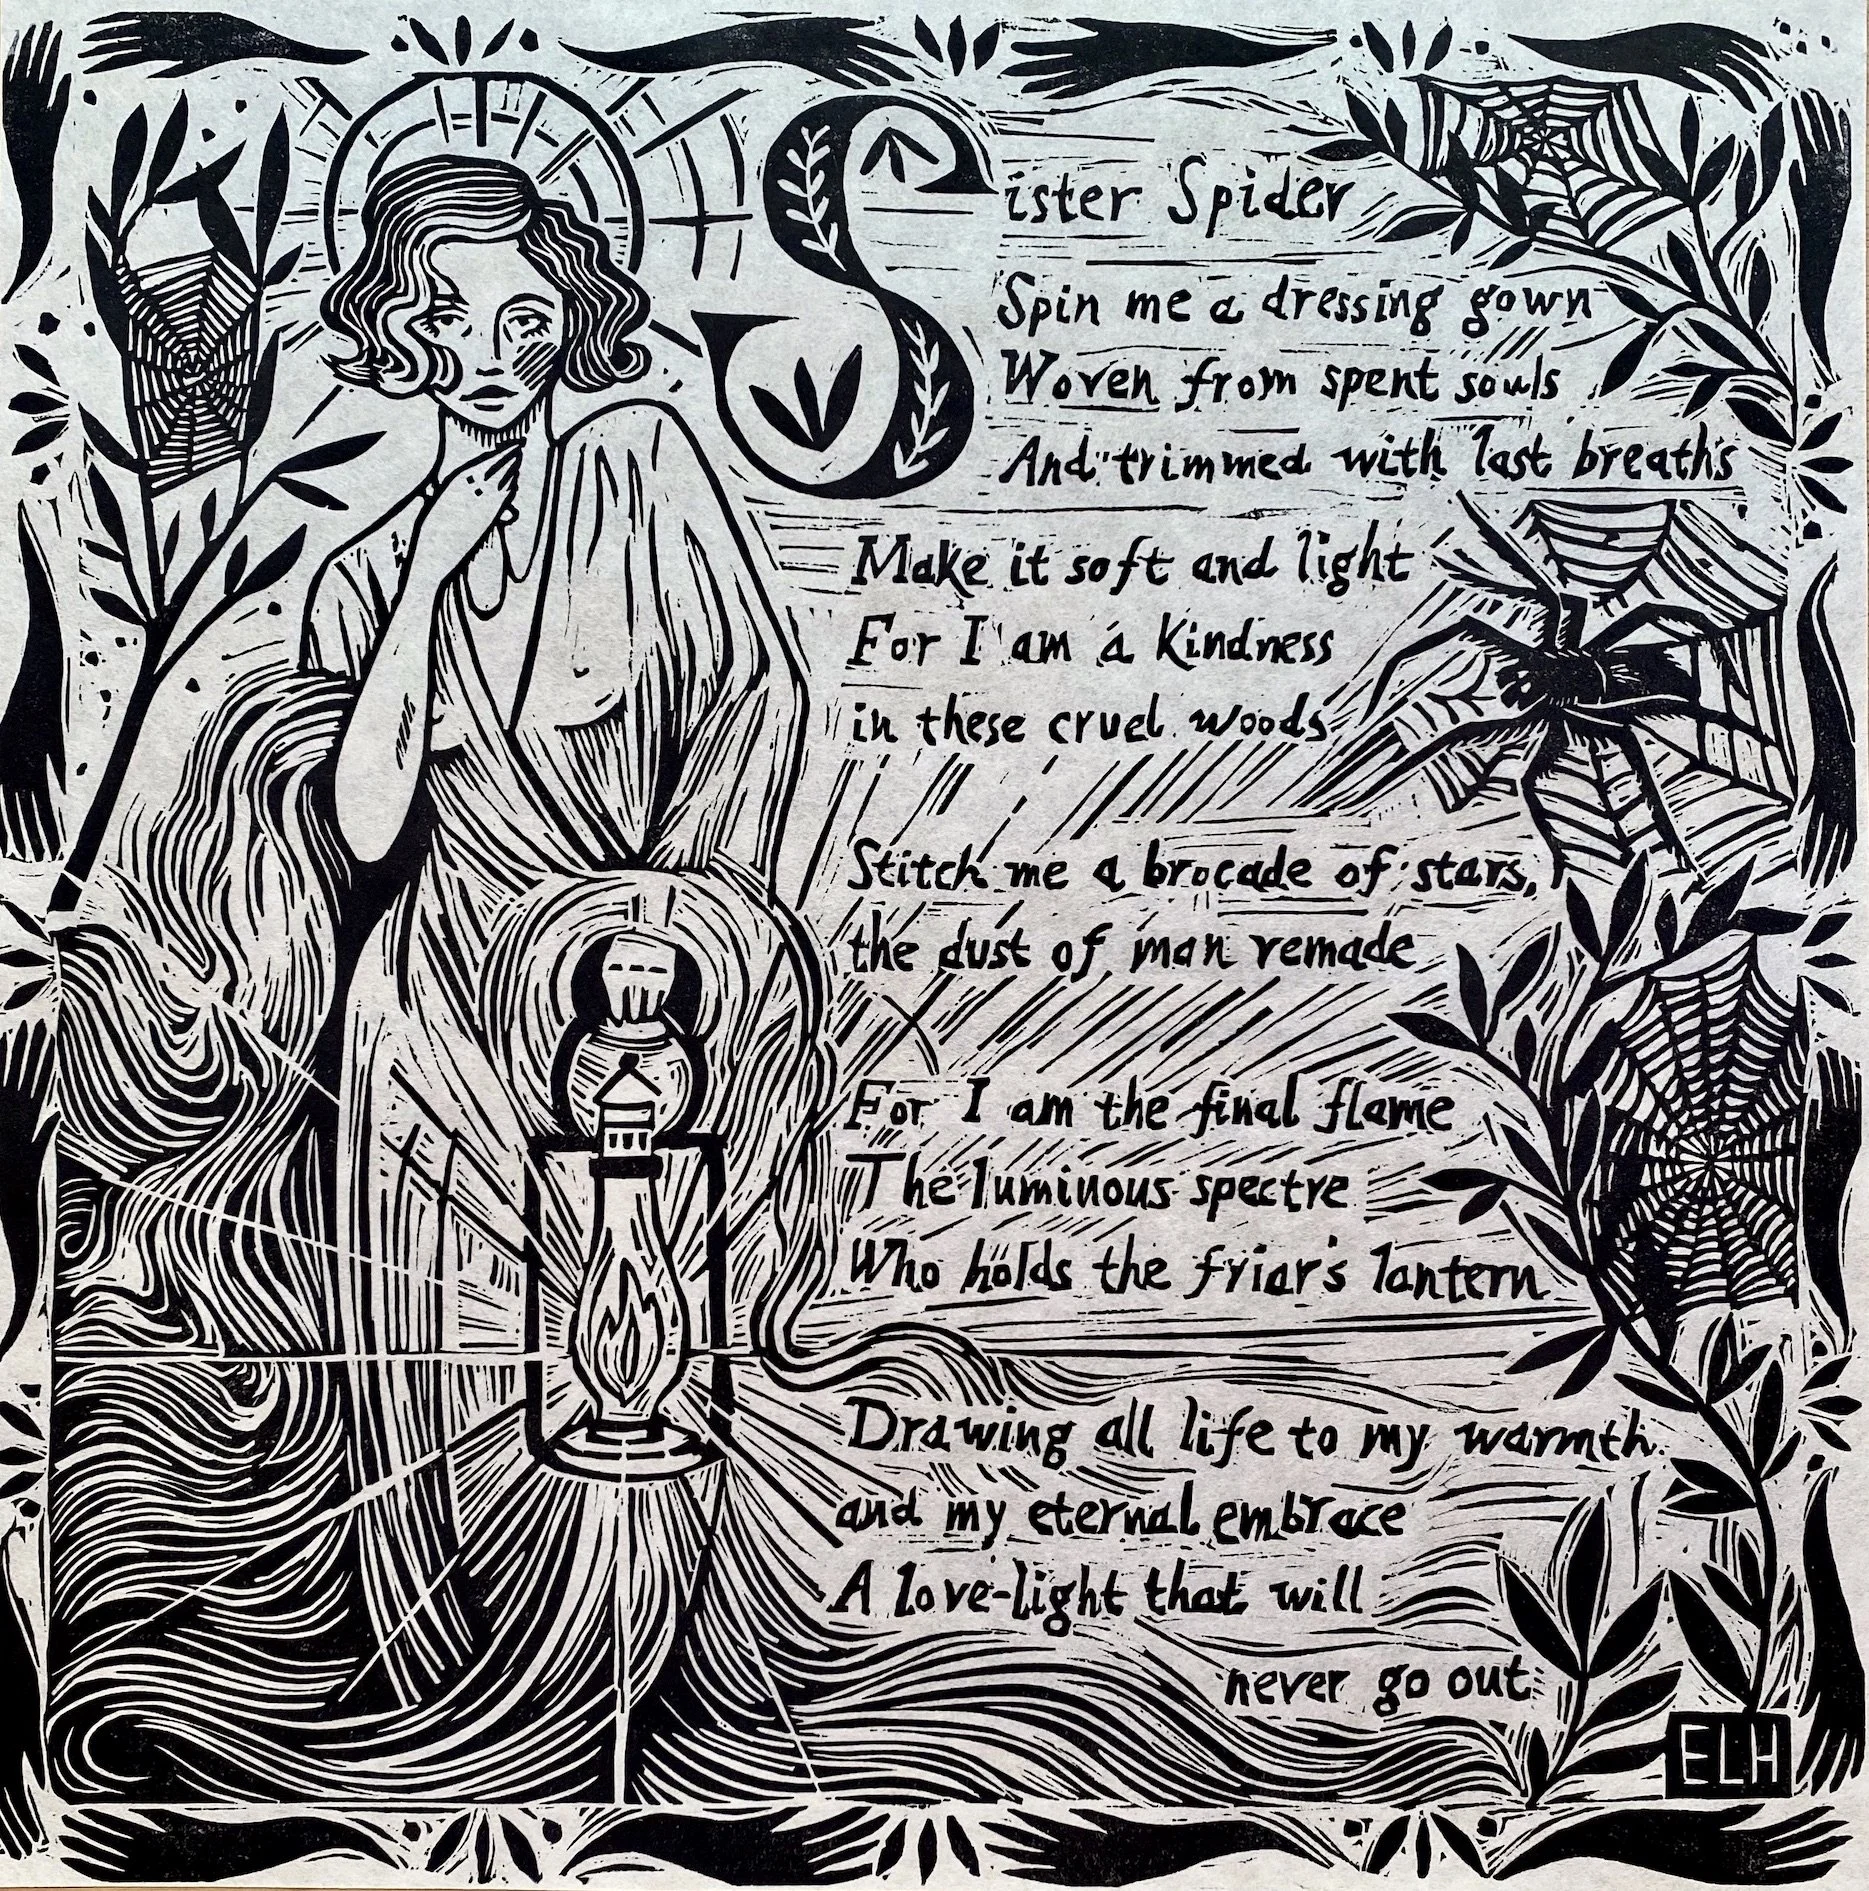 Sister Spider
Spin me a dressing gown
Woven from spent souls
And trimmed with last breaths
Make it soft and light
For I am a Kindness
in these cruel woods
Stitch me a brocade of stars,
the dust of man remade
For I am the final flame
The luminous spectre
Who holds the friar's lantern
Drawing all life to my warmth
and my eternal embrace
A love-light that will
never go out
ELH